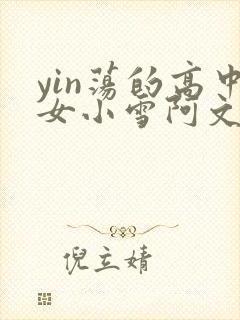 yin荡的高中
女小雪阿文
倪立婧